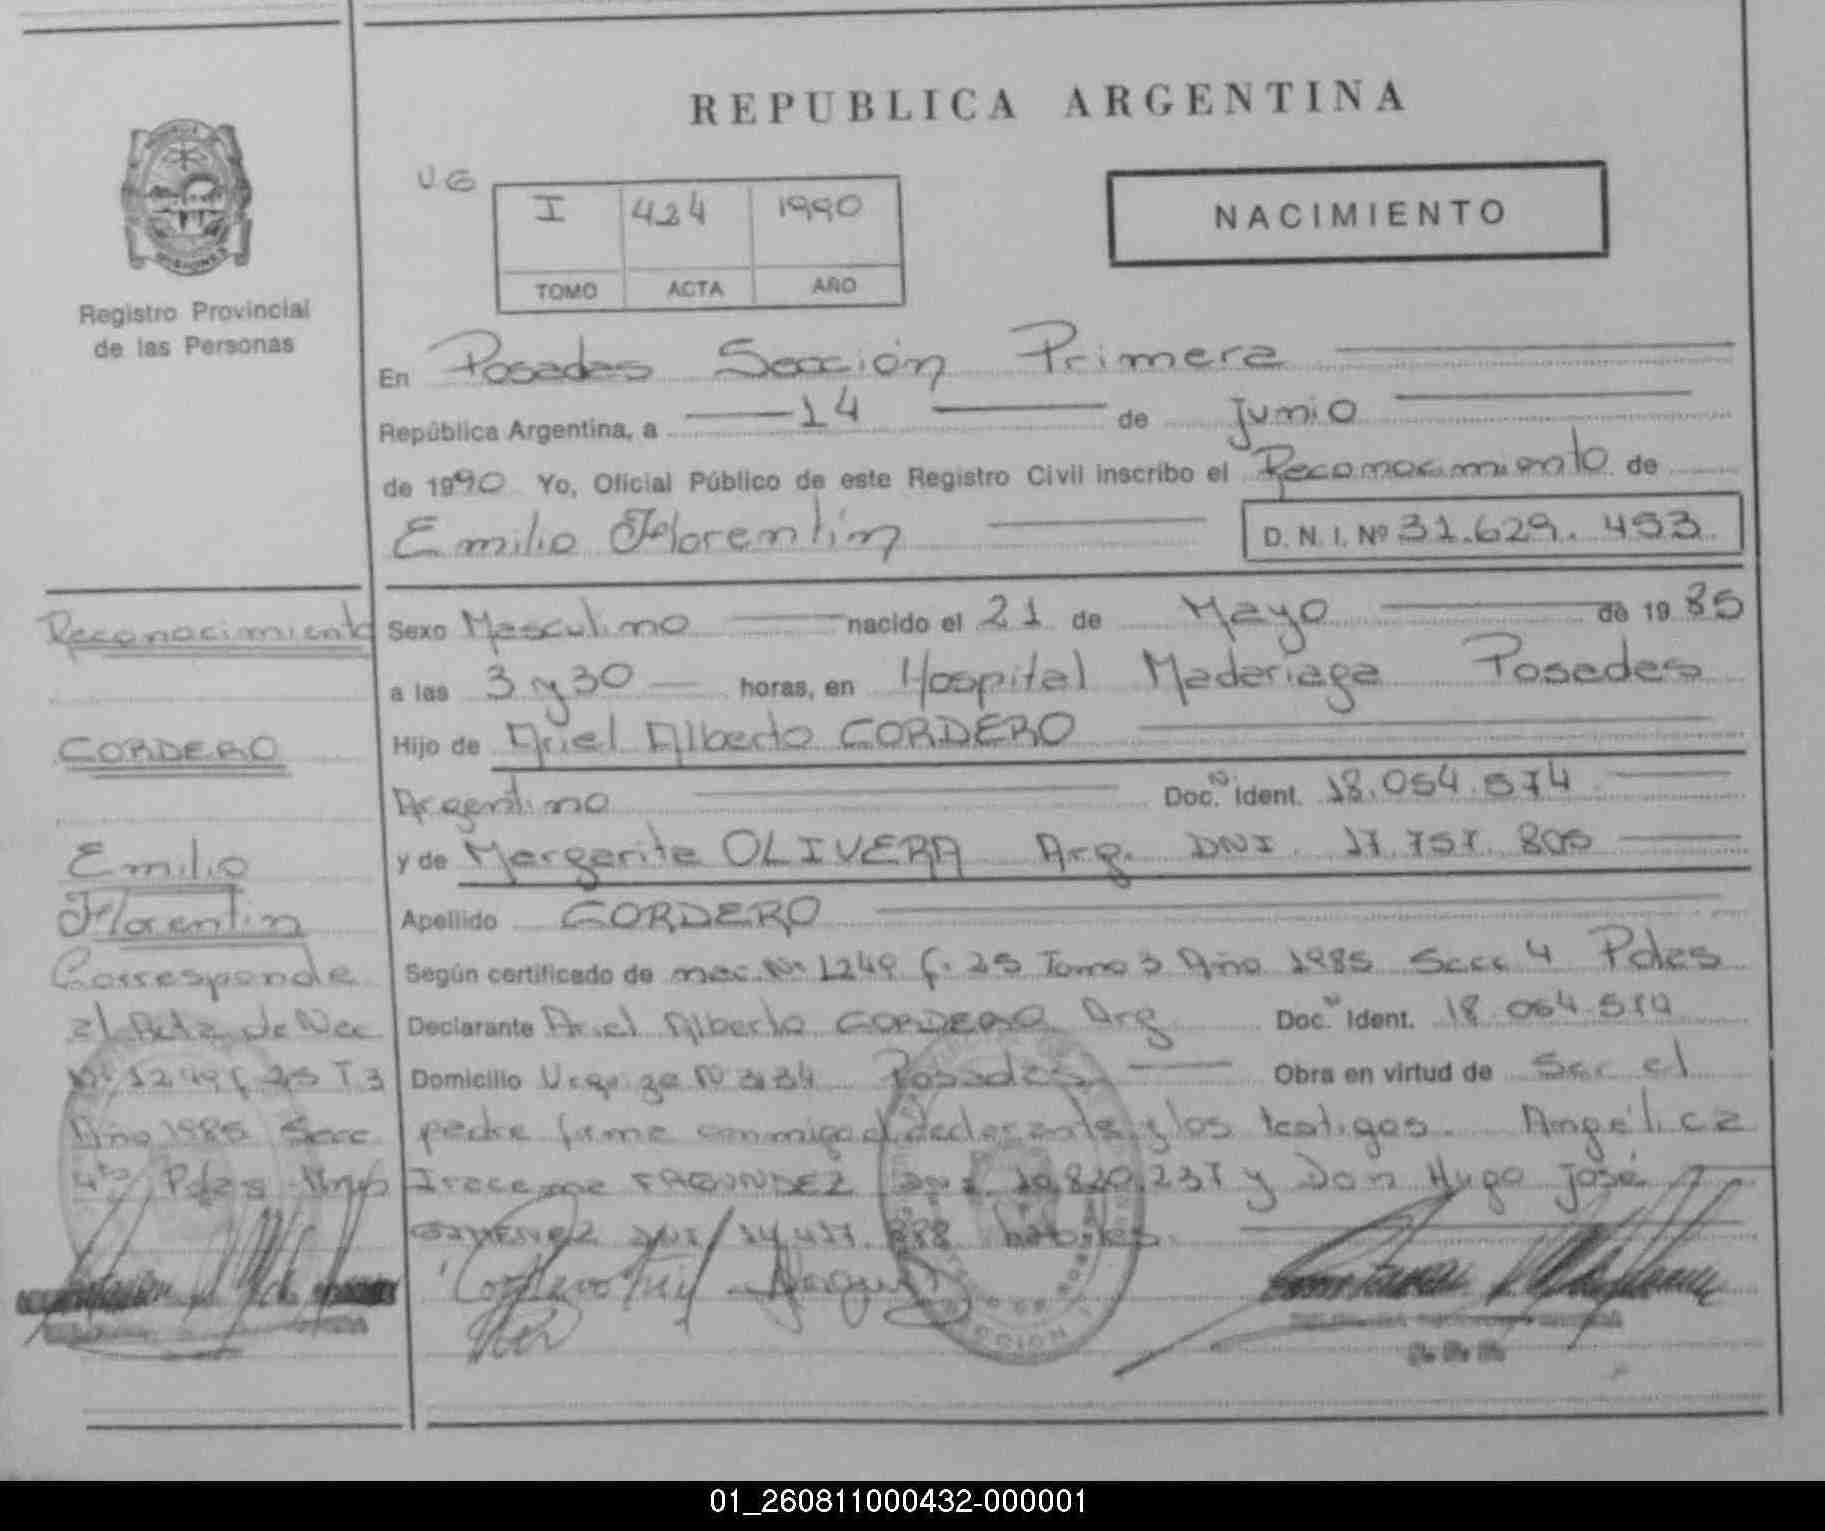 REPUBLICA ARGENTINA
UG
I 424 1990
TOMO ACTA AÑO
NACIMIENTO
MISIONES
Registro Provincial
de las Personas
En Posadas Sección Primera
República Argentina, a 14 de junio
de 1990 Yo, Oficial Público de este Registro Civil inscribo el Reconocimiento de
Emilio Florentín D. N. I. Nº 31.629.453
Reconocimiento
CORDERO
Emilio
Florentín
Corresponde
al Acta de Nac
Nº 1249 f. 25 T 3
Año 1985 Secc
4ta Pdas
Sexo Masculino nacido el 21 de Mayo de 1985
a las 3 y 30 horas, en Hospital Madariaga Posadas
Hijo de Ariel Alberto CORDERO
Argentino Doc. Ident. 18.054.574
y de Margarita OLIVERA Arg. DNI 17.757.805
Apellido CORDERO
Según certificado de nac. Nº 1249 f. 25 Tomo 3 Año 1985 Secc 4 Pdas
Declarante Ariel Alberto CORDERO Arg Doc. Ident. 18.054.574
Domicilio Urquiza Nº Posadas Obra en virtud de Ser el
padre firma conmigo el declarante y los testigos. Angélica
FAGUNDEZ DNI y Don Hugo José
GIMENEZ DNI hábiles.
01_260811000432-000001